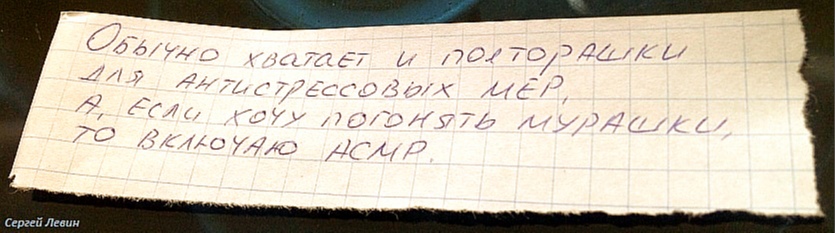 Обычно хватает и полторашки
для антистрессовых мер,
А, если хочу погонять мурашки,
то включаю АСМР.
Сергей Левин